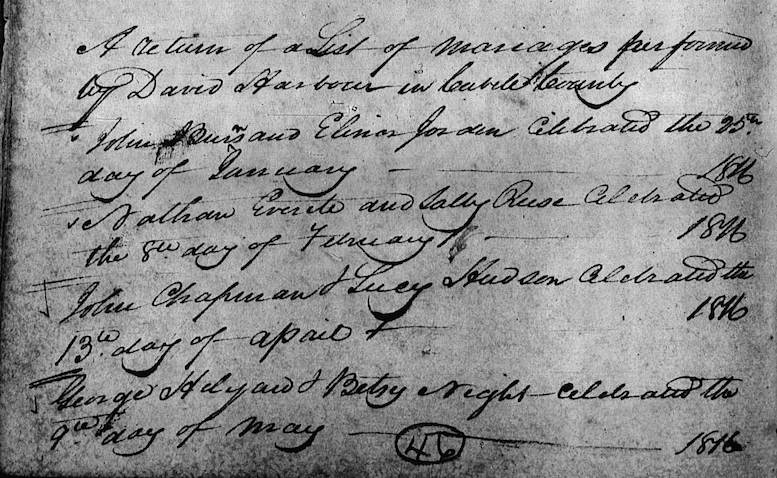 A return of a List of mariages performed
by David Harbour in Cabele County
John and Elinor Jorden Celebrated the 25th
day of January — 1816
Nathan Everete and Sally Ruse Celebrated
the 8th day of February — 1816
John Chapman & Lucy Hudson Celebrated the
13th day of apail 1816
George Hilyard & Betsy Night Celebrated the
9th day of may — 1816
46